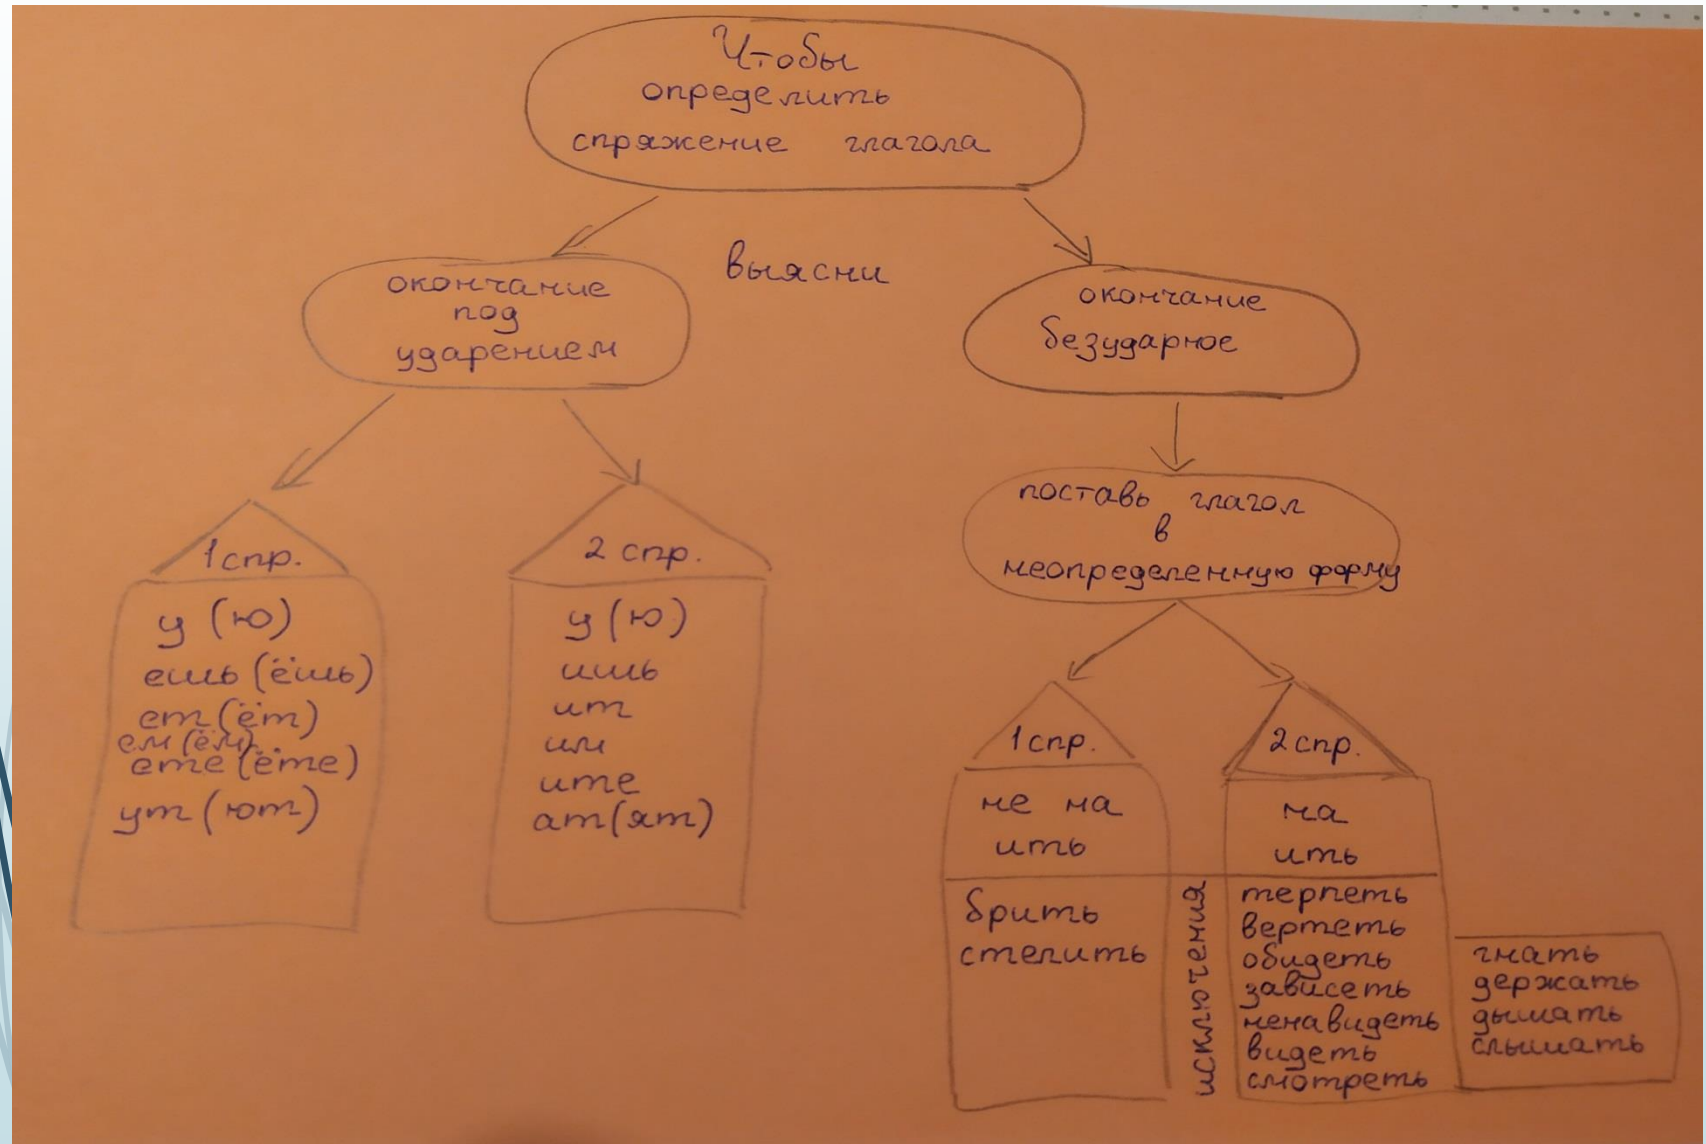 Чтобы
определить
спряжение глагола
выясни
окончание
под
ударением
окончание
безударное
1 спр.
у (ю)
ешь (ёшь)
ет (ёт)
ем (ём)
ете (ёте)
ут (ют)
2 спр.
у (ю)
ишь
ит
им
ите
ат (ят)
поставь глагол
в
неопределенную форму
1 спр.
не на
ить
брить
стелить
исключения
2 спр.
на
ить
терпеть
вертеть
обидеть
зависеть
ненавидеть
видеть
смотреть
гнать
держать
дышать
слышать